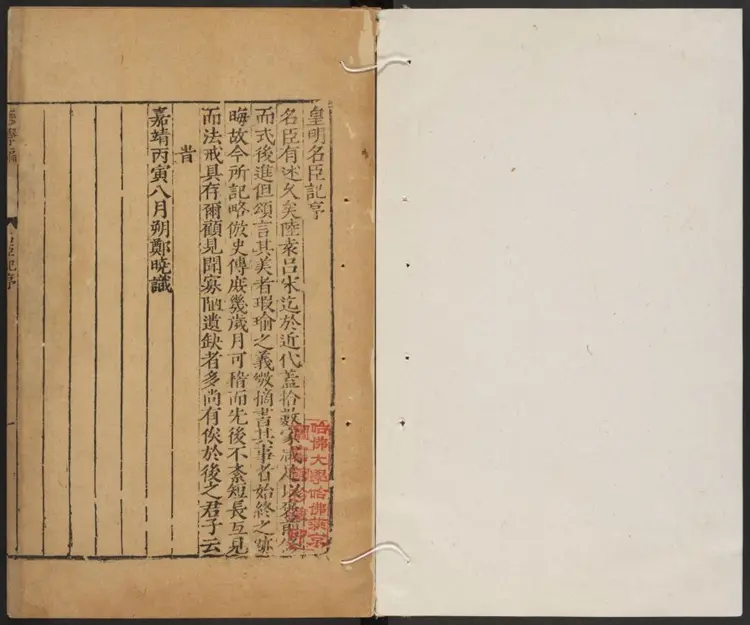 皇明名臣記序
名臣有述久矣陸袁呂宋迄於近代蓋拾數家咸足以
而式後進但頌言其美者瑕瑜之義微摘書其事者始終之跡
晦故今所記略倣史傳庶幾歲月可稽而先後不紊短長互見
而法戒具存爾顧見聞寡陋遺缺者多尚有俟於後之君子云
旹
嘉靖丙寅八月朔鄭曉識
臣記序
哈佛大學哈佛燕京